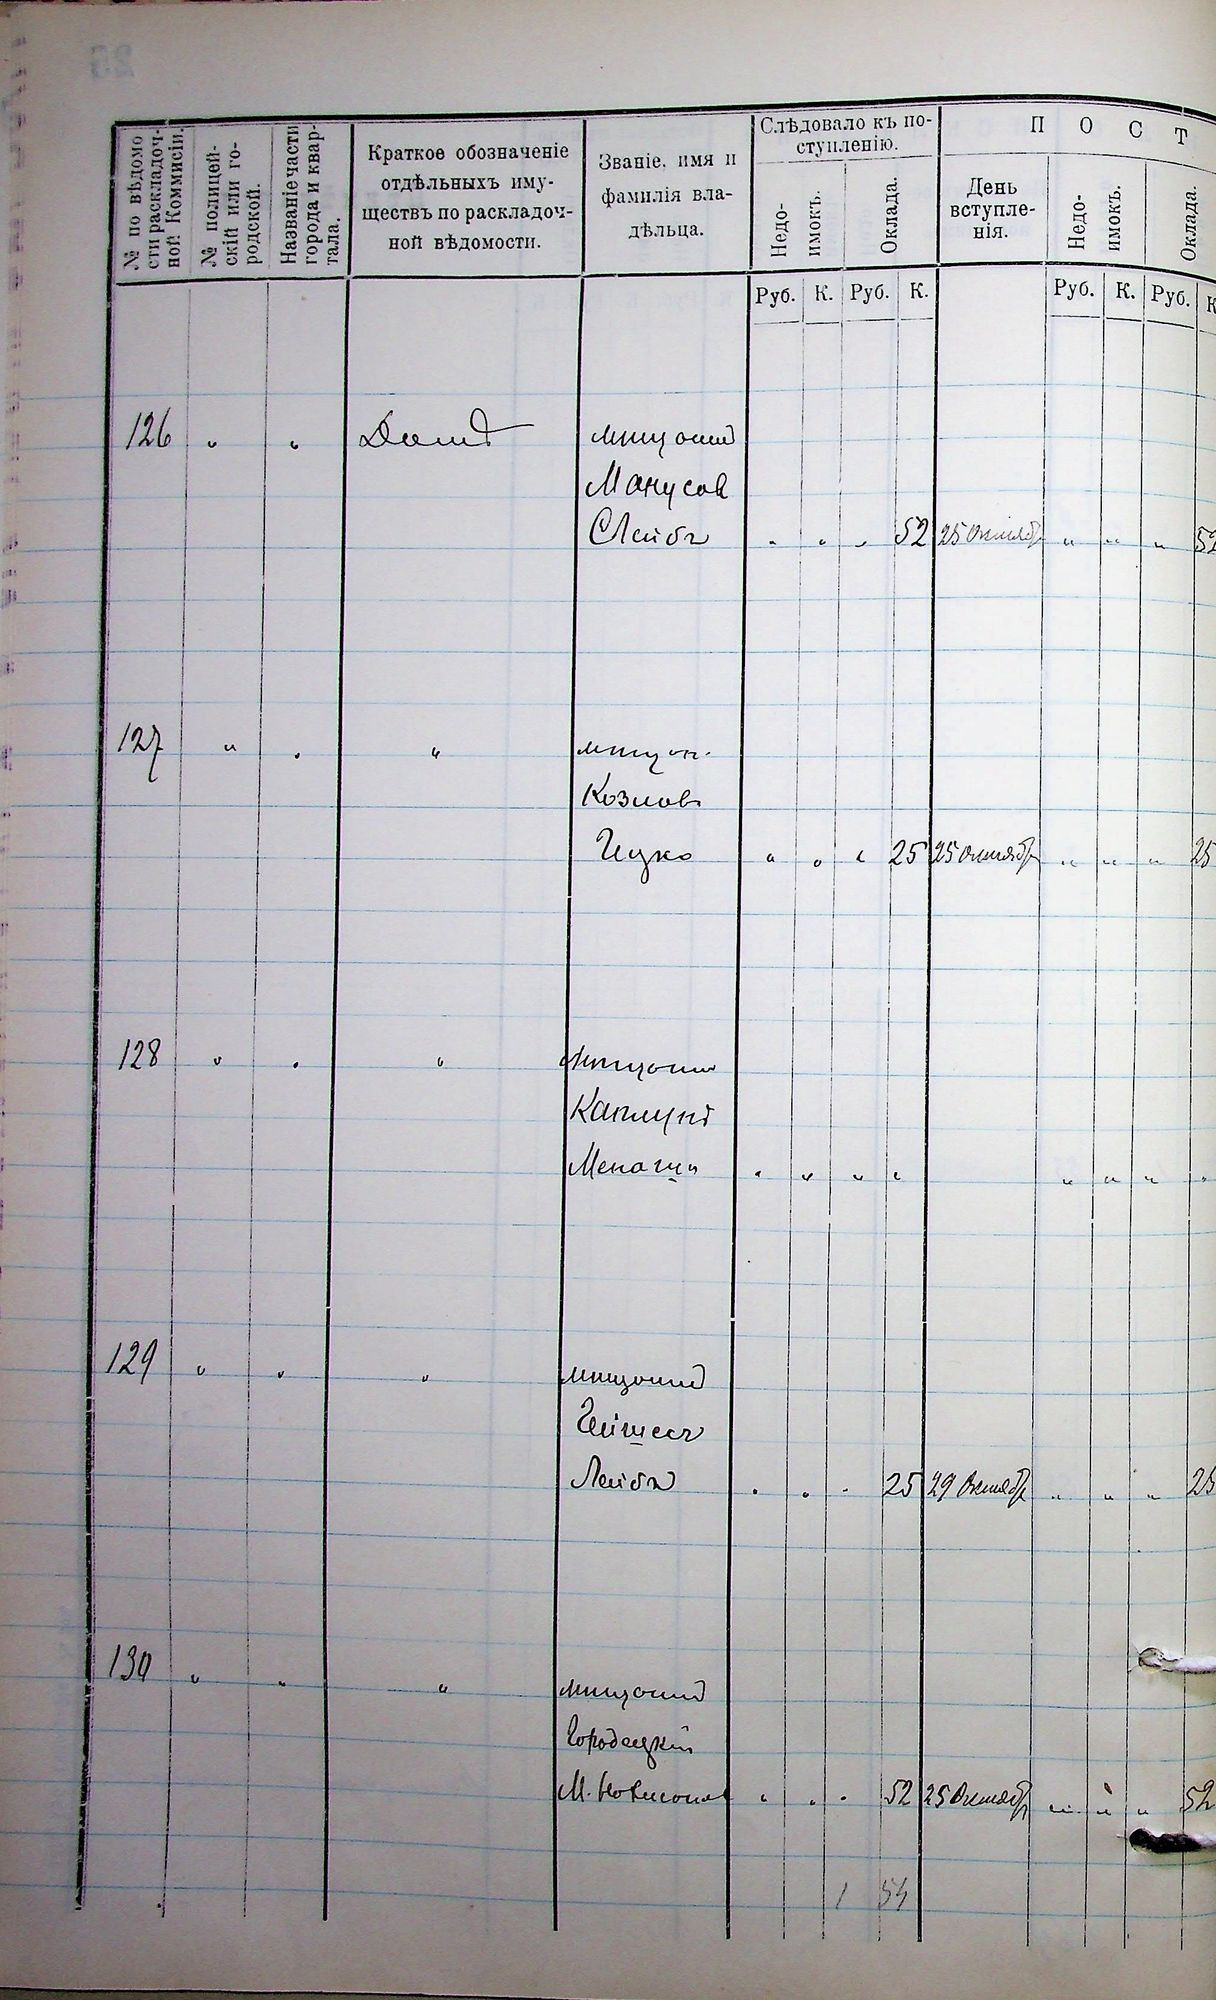 № по вѣдомо
сти раскладоч-
ной Коммисіи.
№ полицей-
скій или го-
родской.
Названіе части
города и квар-
тала.
Краткое обозначеніе
отдѣльныхъ иму-
ществъ по раскладоч-
ной вѣдомости.
Званіе, имя и
фамилія вла-
дѣльца.
Слѣдовало къ по-
ступленію.
Недо-
имокъ.
Оклада.
День
вступле-
нія.
П О С Т
Недо-
имокъ.
Оклада.
Руб. К. Руб. К. Руб. К. Руб. К
126 " " Домъ мѣщанинъ
Манусов
Лейба " " " 52 25 Октября " " " 52
127 " " "
Козловъ
Ицко " " " 25 25 Октября " " " 25
128 " " " мѣщанин
Каплунъ
" " " " " " " "
129 " " " мѣщанинъ
Лейба " " " 25 29 Октября " " " 25
130 " " " мѣщанинъ
Городецкій
М. " " " 52 25 Октября " " " 52
1 54